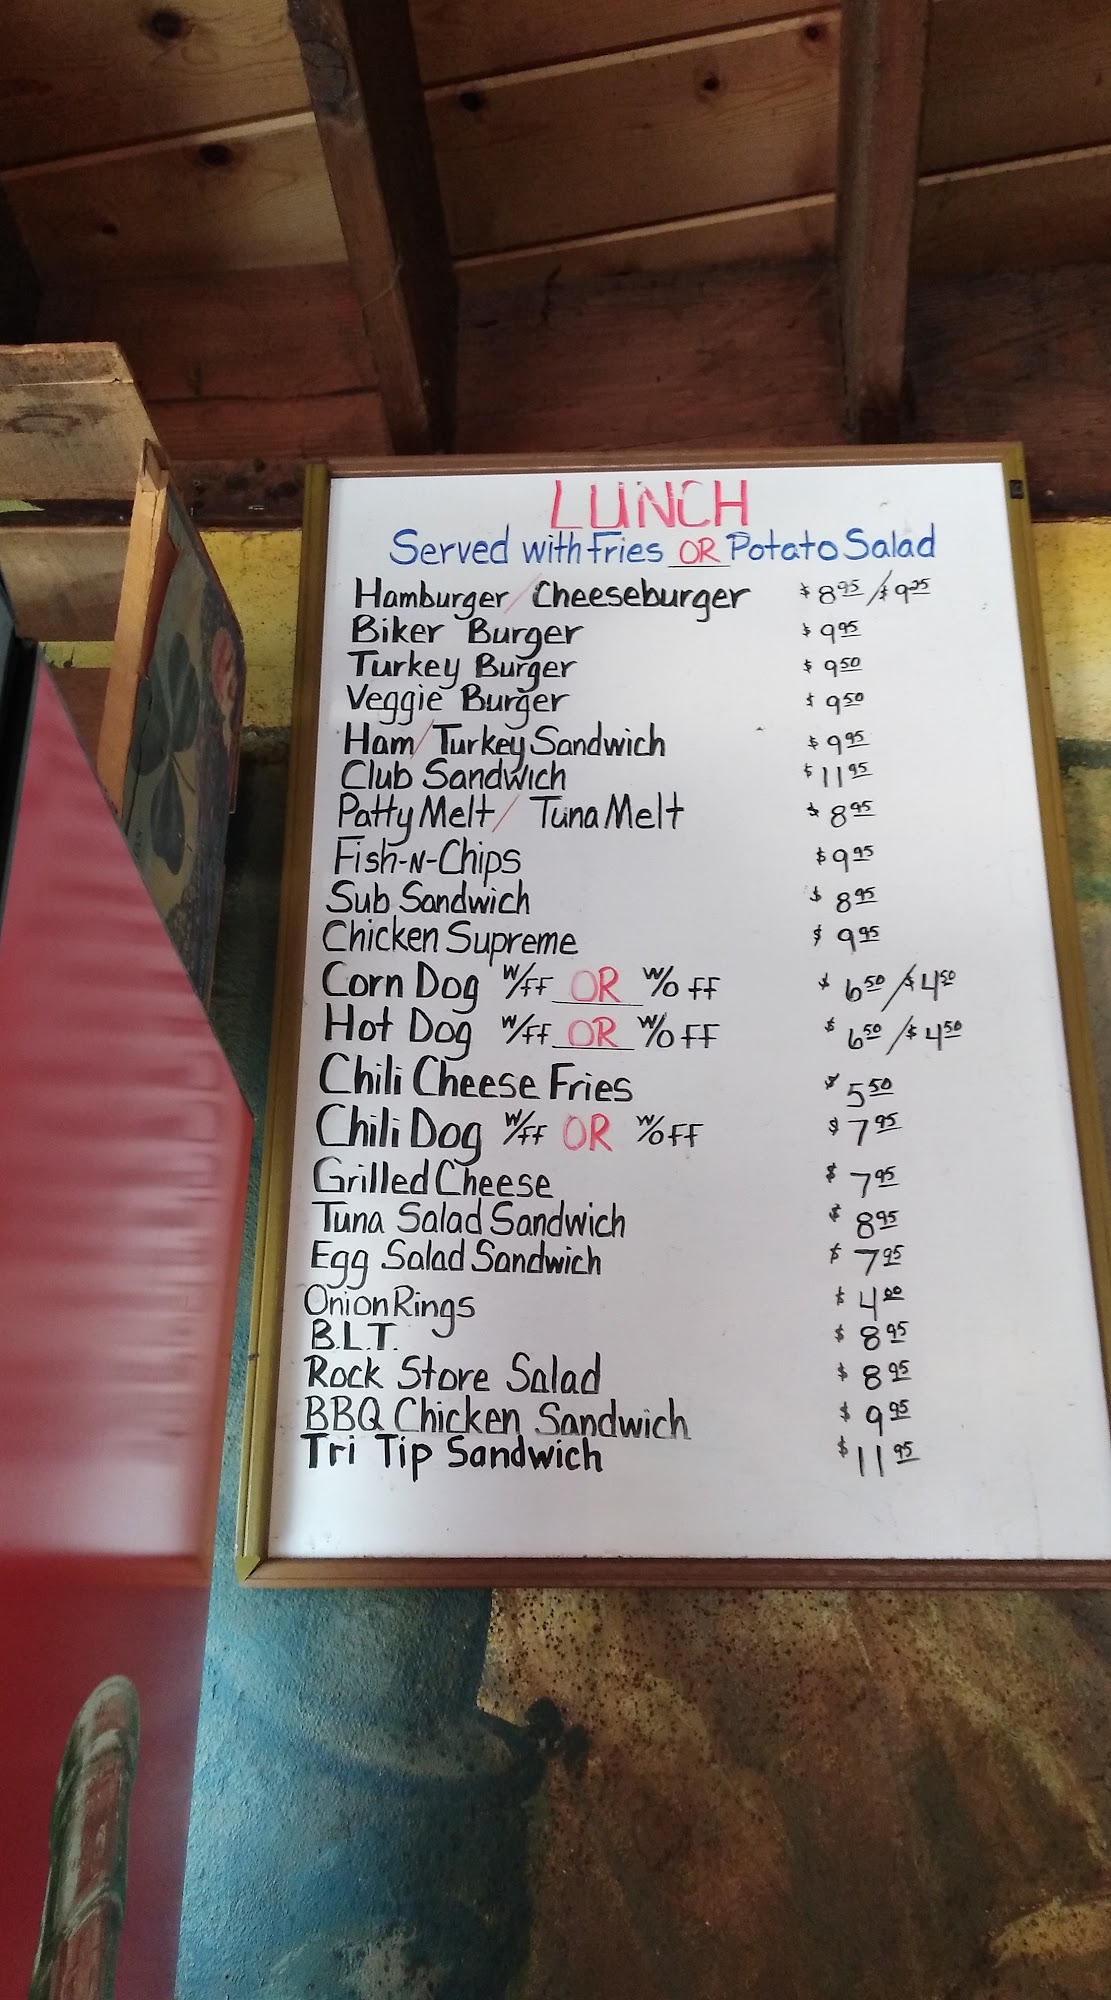 LUNCH
Served with Fries OR Potato Salad
Hamburger / Cheeseburger $8.95 / $9.25
Biker Burger $9.95
Turkey Burger $9.50
Veggie Burger $9.50
Ham / Turkey Sandwich $9.95
Club Sandwich $11.95
Patty Melt / Tuna Melt $8.95
Fish-N-Chips $9.95
Sub Sandwich $8.95
Chicken Supreme $9.95
Corn Dog w/FF OR w/o FF $6.50 / $4.50
Hot Dog w/FF OR w/o FF $6.50 / $4.50
Chili Cheese Fries $5.50
Chili Dog w/FF OR w/o FF $7.95
Grilled Cheese $7.95
Tuna Salad Sandwich $8.95
Egg Salad Sandwich $7.95
Onion Rings $4.00
B.L.T. $8.95
Rock Store Salad $8.95
BBQ Chicken Sandwich $9.95
Tri Tip Sandwich $11.95